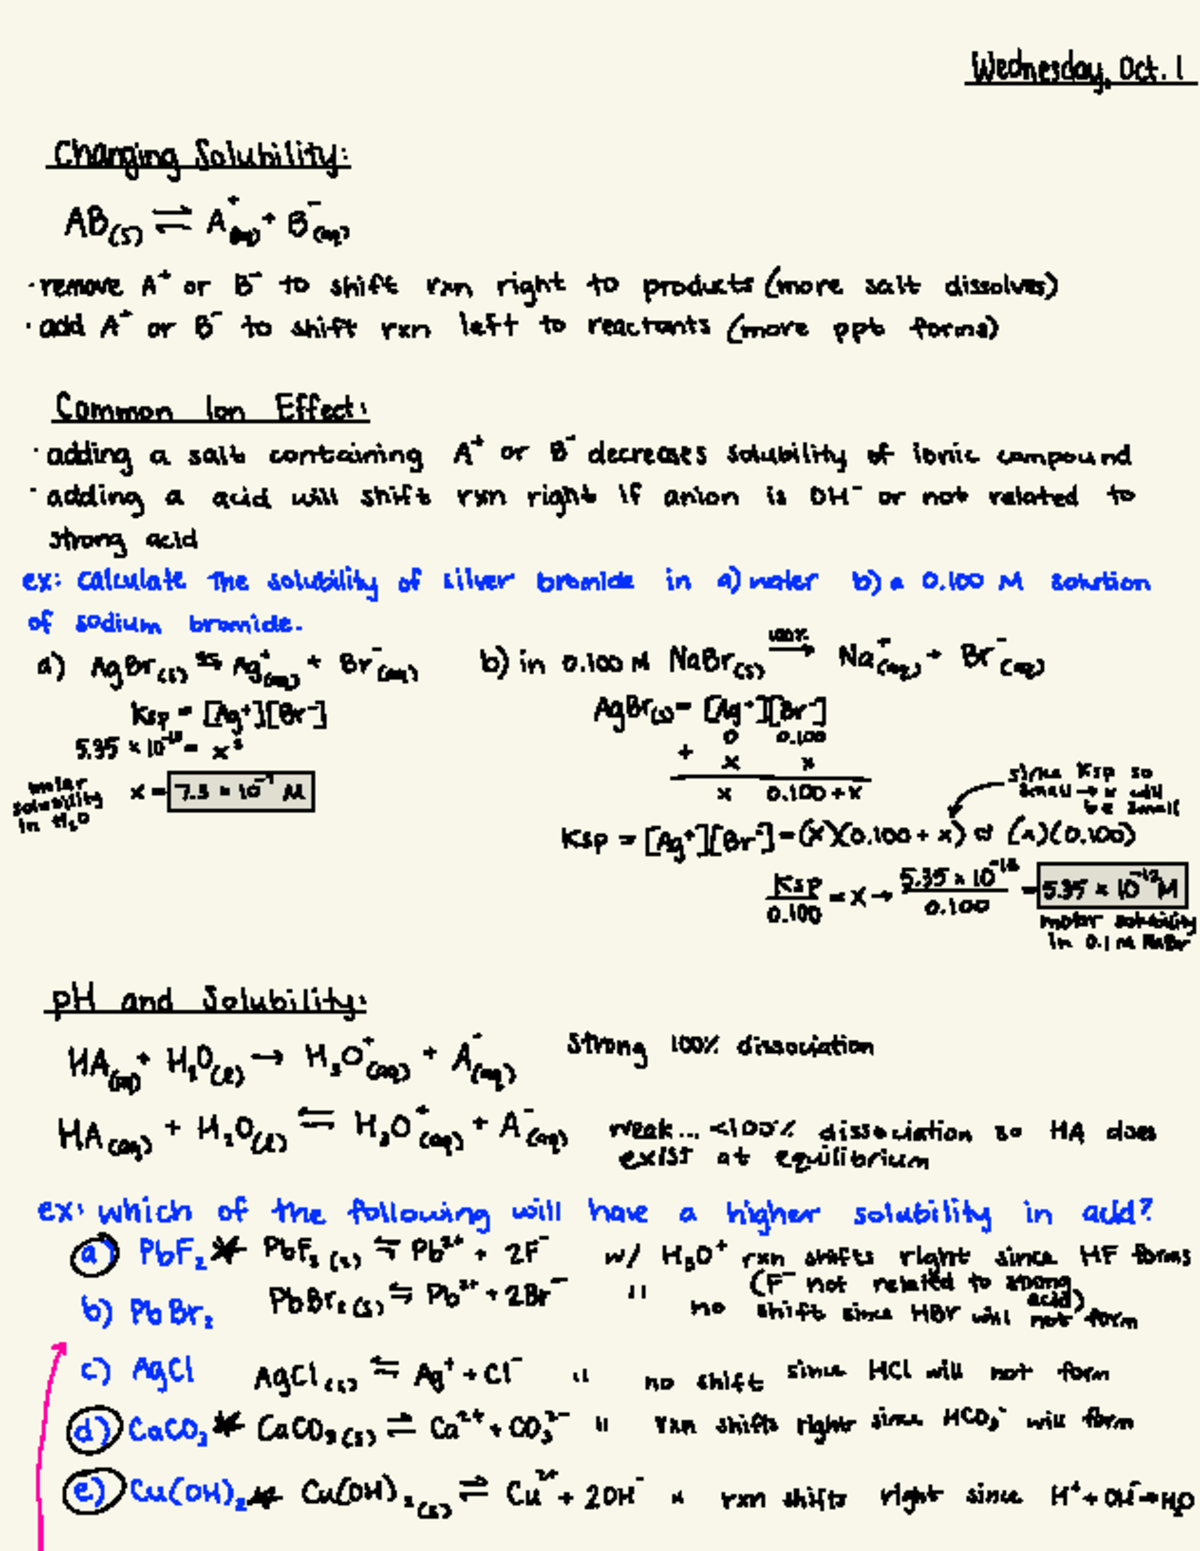 Wednesday, Oct. 1
Changing Solubility:
AB(s) ⇌ A⁺(aq) + B⁻(aq)
· remove A⁺ or B⁻ to shift rxn right to products (more salt dissolves)
· add A⁺ or B⁻ to shift rxn left to reactants (more ppt forms)
Common Ion Effect:
· adding a salt containing A⁺ or B⁻ decreases solubility of ionic compound
· adding a acid will shift rxn right if anion is OH⁻ or not related to
strong acid
ex: calculate the solubility of silver bromide in a) water b) a 0.100 M solution
of sodium bromide.
a) AgBr(s) ⇌ Ag⁺(aq) + Br⁻(aq)
Ksp = [Ag⁺][Br⁻]
5.35 × 10⁻¹³ = x²
x = 7.3 × 10⁻⁷ M
molar
solubility
in H₂O
b) in 0.100 M NaBr(s) 100% → Na⁺(aq) + Br⁻(aq)
AgBr(s) = [Ag⁺][Br⁻]
0 0.100
+ x x
x 0.100 + x
since Ksp so
small → x will
be small
Ksp = [Ag⁺][Br⁻] = (x)(0.100 + x) ≈ (x)(0.100)
Ksp/0.100 = x → 5.35 × 10⁻¹³/0.100 = 5.35 × 10⁻¹² M
molar solubility
in 0.1 M NaBr
pH and Solubility:
HA(aq) + H₂O(l) → H₃O⁺(aq) + A⁻(aq) Strong 100% dissociation
HA(aq) + H₂O(l) ⇌ H₃O⁺(aq) + A⁻(aq) weak... <100% dissociation so HA does
exist at equilibrium
ex: which of the following will have a higher solubility in acid?
a) PbF₂* PbF₂(s) ⇌ Pb²⁺ + 2F⁻ w/ H₃O⁺ rxn shifts right since HF forms
(F⁻ not related to strong
acid)
b) PbBr₂ PbBr₂(s) ⇌ Pb²⁺ + 2Br⁻ " no shift since HBr will not form
c) AgCl AgCl(s) ⇌ Ag⁺ + Cl⁻ " no shift since HCl will not form
d) CaCO₃* CaCO₃(s) ⇌ Ca²⁺ + CO₃²⁻ " rxn shifts right since HCO₃⁻ will form
e) Cu(OH)₂* Cu(OH)₂(s) ⇌ Cu²⁺ + 2OH⁻ " rxn shifts right since H⁺ + OH⁻ → H₂O